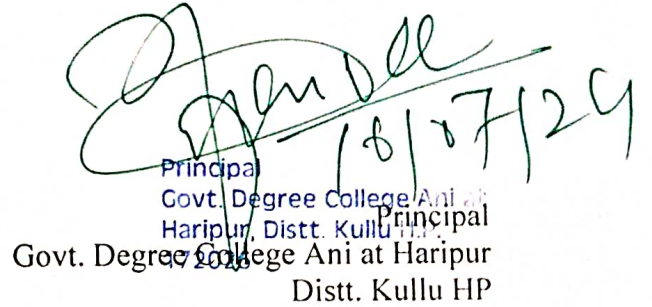 Principal
Govt. Degree College Ani at
Haripur, Distt. Kullu H.P.
172026
Principal
Govt. Degree College Ani at Haripur
Distt. Kullu HP